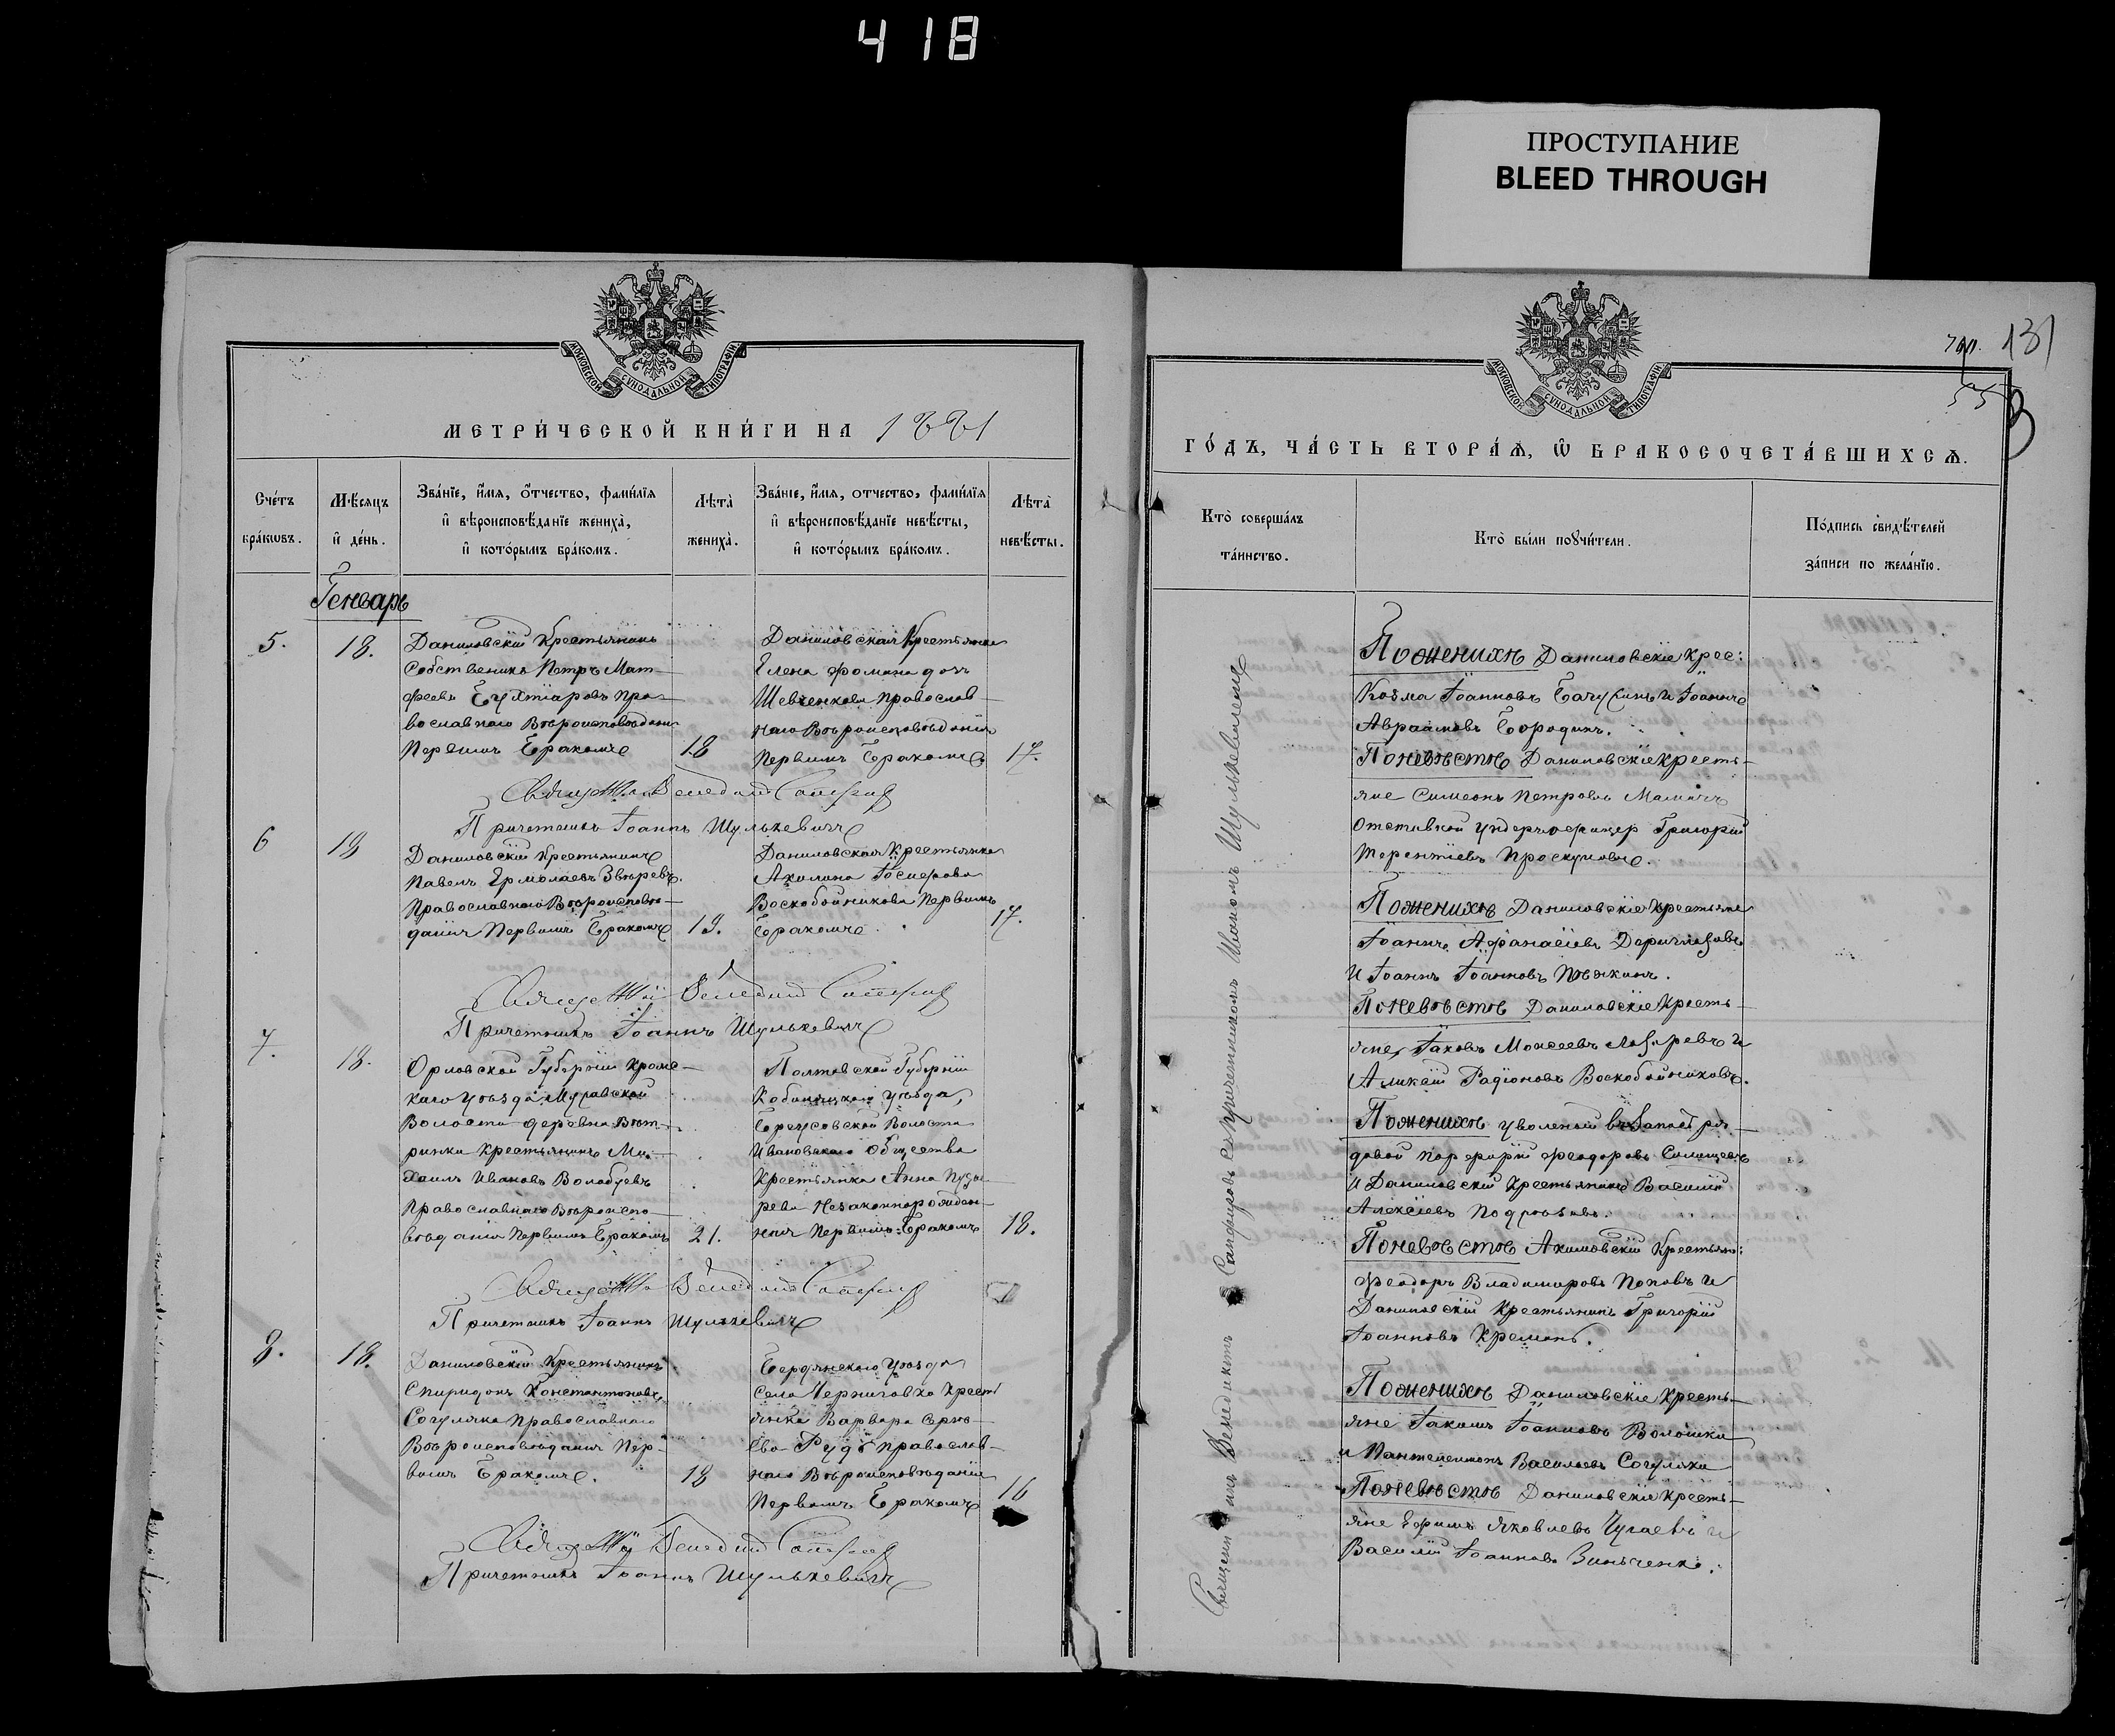 418
ПРОСТУПАНИЕ
BLEED THROUGH
МОСКОВСКОЙ СѴНОДАЛЬНОЙ ТИПОГРАФІИ
МЕТРИ́ЧЕСКОЙ КНИ́ГИ НА 1881
Сче́тъ бра́кѡвъ.
Мѣ́сяцъ и҆ де́нь.
Зва́нїе, и҆́мя, ѻ҆́тчество, фамѝлїя
и҆ вѣроисповѣ́данїе женихà,
и҆ кото́рымъ бра́комъ.
Лѣ́та женихà.
Зва́нїе, и҆́мя, отчество, фамѝлїя
и҆ вѣроисповѣ́данїе невѣ́сты,
и҆ кото́рымъ бра́комъ.
Лѣ́та невѣ́сты.
Генварь
5.
18.
Даниловскій Крестьянинъ
Собственикъ Петръ Мат-
феевъ Бухтіаровъ Пра-
вославнаго Вѣроисповѣдані
Первымъ Бракомъ
18
Даниловская Крестьянка
Елена Фомина дочь
Шевченкова Православ-
наго Вѣроисповѣданія
Первымъ Бракомъ
17.
Причетникъ Іоаннъ Шулькевичъ
6
18
Даниловскій Крестьянинъ
Павелъ Ермолаевъ Звѣревъ.
Православнаго Вѣроисповѣ-
данія Первымъ Бракомъ
18.
Даниловская Крестьянка
Акилина
Воскобойникова Первымъ
Бракомъ
17.
Причетникъ Іоаннъ Шулькевичъ
7.
18.
Орловской Губерніи Кромс-
каго Уѣзда
Волости деревни
Крестьянинъ Ми-
хаилъ Ивановъ Волобуевъ
Православнаго Вѣроиспо-
вѣданія Первымъ Бракомъ
21.
Полтавской Губерніи
Кобиляцкаго Уѣзда,
Бреусовской Волости
Ивановскаго Общества
Крестьянка Анна
Незаконнорожден-
ная Первымъ Бракомъ
18.
Причетникъ Іоаннъ Шулькевичъ
8.
18.
Даниловскій Крестьянинъ
Спиридонъ Константиновъ
Согуляка Православнаго
Вѣроисповѣданія Пер-
вымъ Бракомъ.
18
Бердянскаго Уѣзда
Села Черниговка Крест
янка Варвара
Православ-
наго Вѣроисповѣданія
Первымъ Бракомъ
16
Причетникъ Іоаннъ Шулькевичъ
131
МОСКОВСКОЙ СѴНОДАЛЬНОЙ ТИПОГРАФІИ
ГО́ДЪ, ЧА́СТЬ ВТОРА́Ѧ, Ѡ҆ БРАКОСОЧЕТА́ВШИХСѦ.
Кто̀ соверша́лъ
та́инство.
Кто̀ бы́ли порꙋчи́тели.
По́дпись свидѣ́телей
за́писи по жела́нїю.
Священникъ Венедиктъ Сапфировъ съ причетникомъ Иваномъ Шулькевичемъ
По женихѣ Даниловскіе Крес:
Козма Іоанновъ и Іоаннъ
Авраамовъ Бородинъ.
По невѣстѣ Даниловскіе Кресть-
яне Симеонъ Петровъ
Отставной Ундеръ офицер Григорій
Терентіевъ Проскуповъ.
По женихѣ Даниловскіе Крестьяне
Іоаннъ Афанасіевъ
и Іоаннъ Іоанновъ
По невѣстѣ Даниловскіе Кресть-
яне, Іаковъ Моисеевъ и
Радіоновъ Воскобойниковъ.
По женихѣ уволеный въ запас ря-
довой Порфирій Феодоровъ
и Даниловскій Крестьянинъ Василій
Алексіевъ
По невѣстѣ Акимовскій Крестьян:
Феодоръ Владимировъ Поповъ и
Даниловскій Крестьянинъ Григорій
Іоанновъ Кремень.
По женихѣ Даниловскіе Кресть-
яне Іакимъ Іоанновъ Волошка
и Пантелеимонъ Васильевъ Согуляка
По невѣстѣ Даниловскіе Кресть-
яне Ефимъ Яковлевъ Чугаевъ и
Василій Іоанновъ Зинченко.